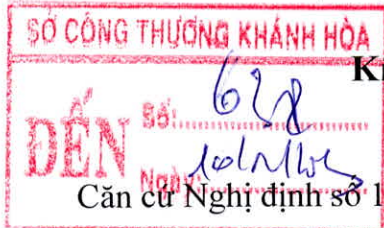 SỞ CÔNG THƯƠNG KHÁNH HÒA
K
ĐẾN
Số: 628
Ngày:
Căn cứ Nghị định số 1